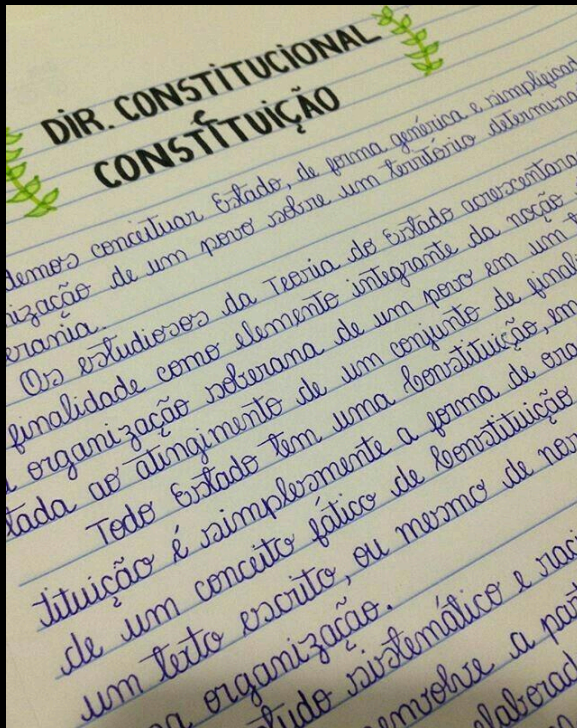 DIR. CONSTITUCIONAL
CONSTITUIÇÃO
demos conceituar Estado, de forma genérica e simplificad
nização de um povo sobre um território determina
erania.
Os estudiosos da Teoria do Estado acrescentara
finalidade como elemento integrante da noção
organização soberana de um povo em um t
tada ao atingimento de um conjunto de final
Todo Estado tem uma Constituição, em
tituição é simplesmente a forma de org
de um conceito fático de Constituição
um texto escrito, ou mesmo de nor
a organização.
tudo sistemático e raci
envolve a part
laborad